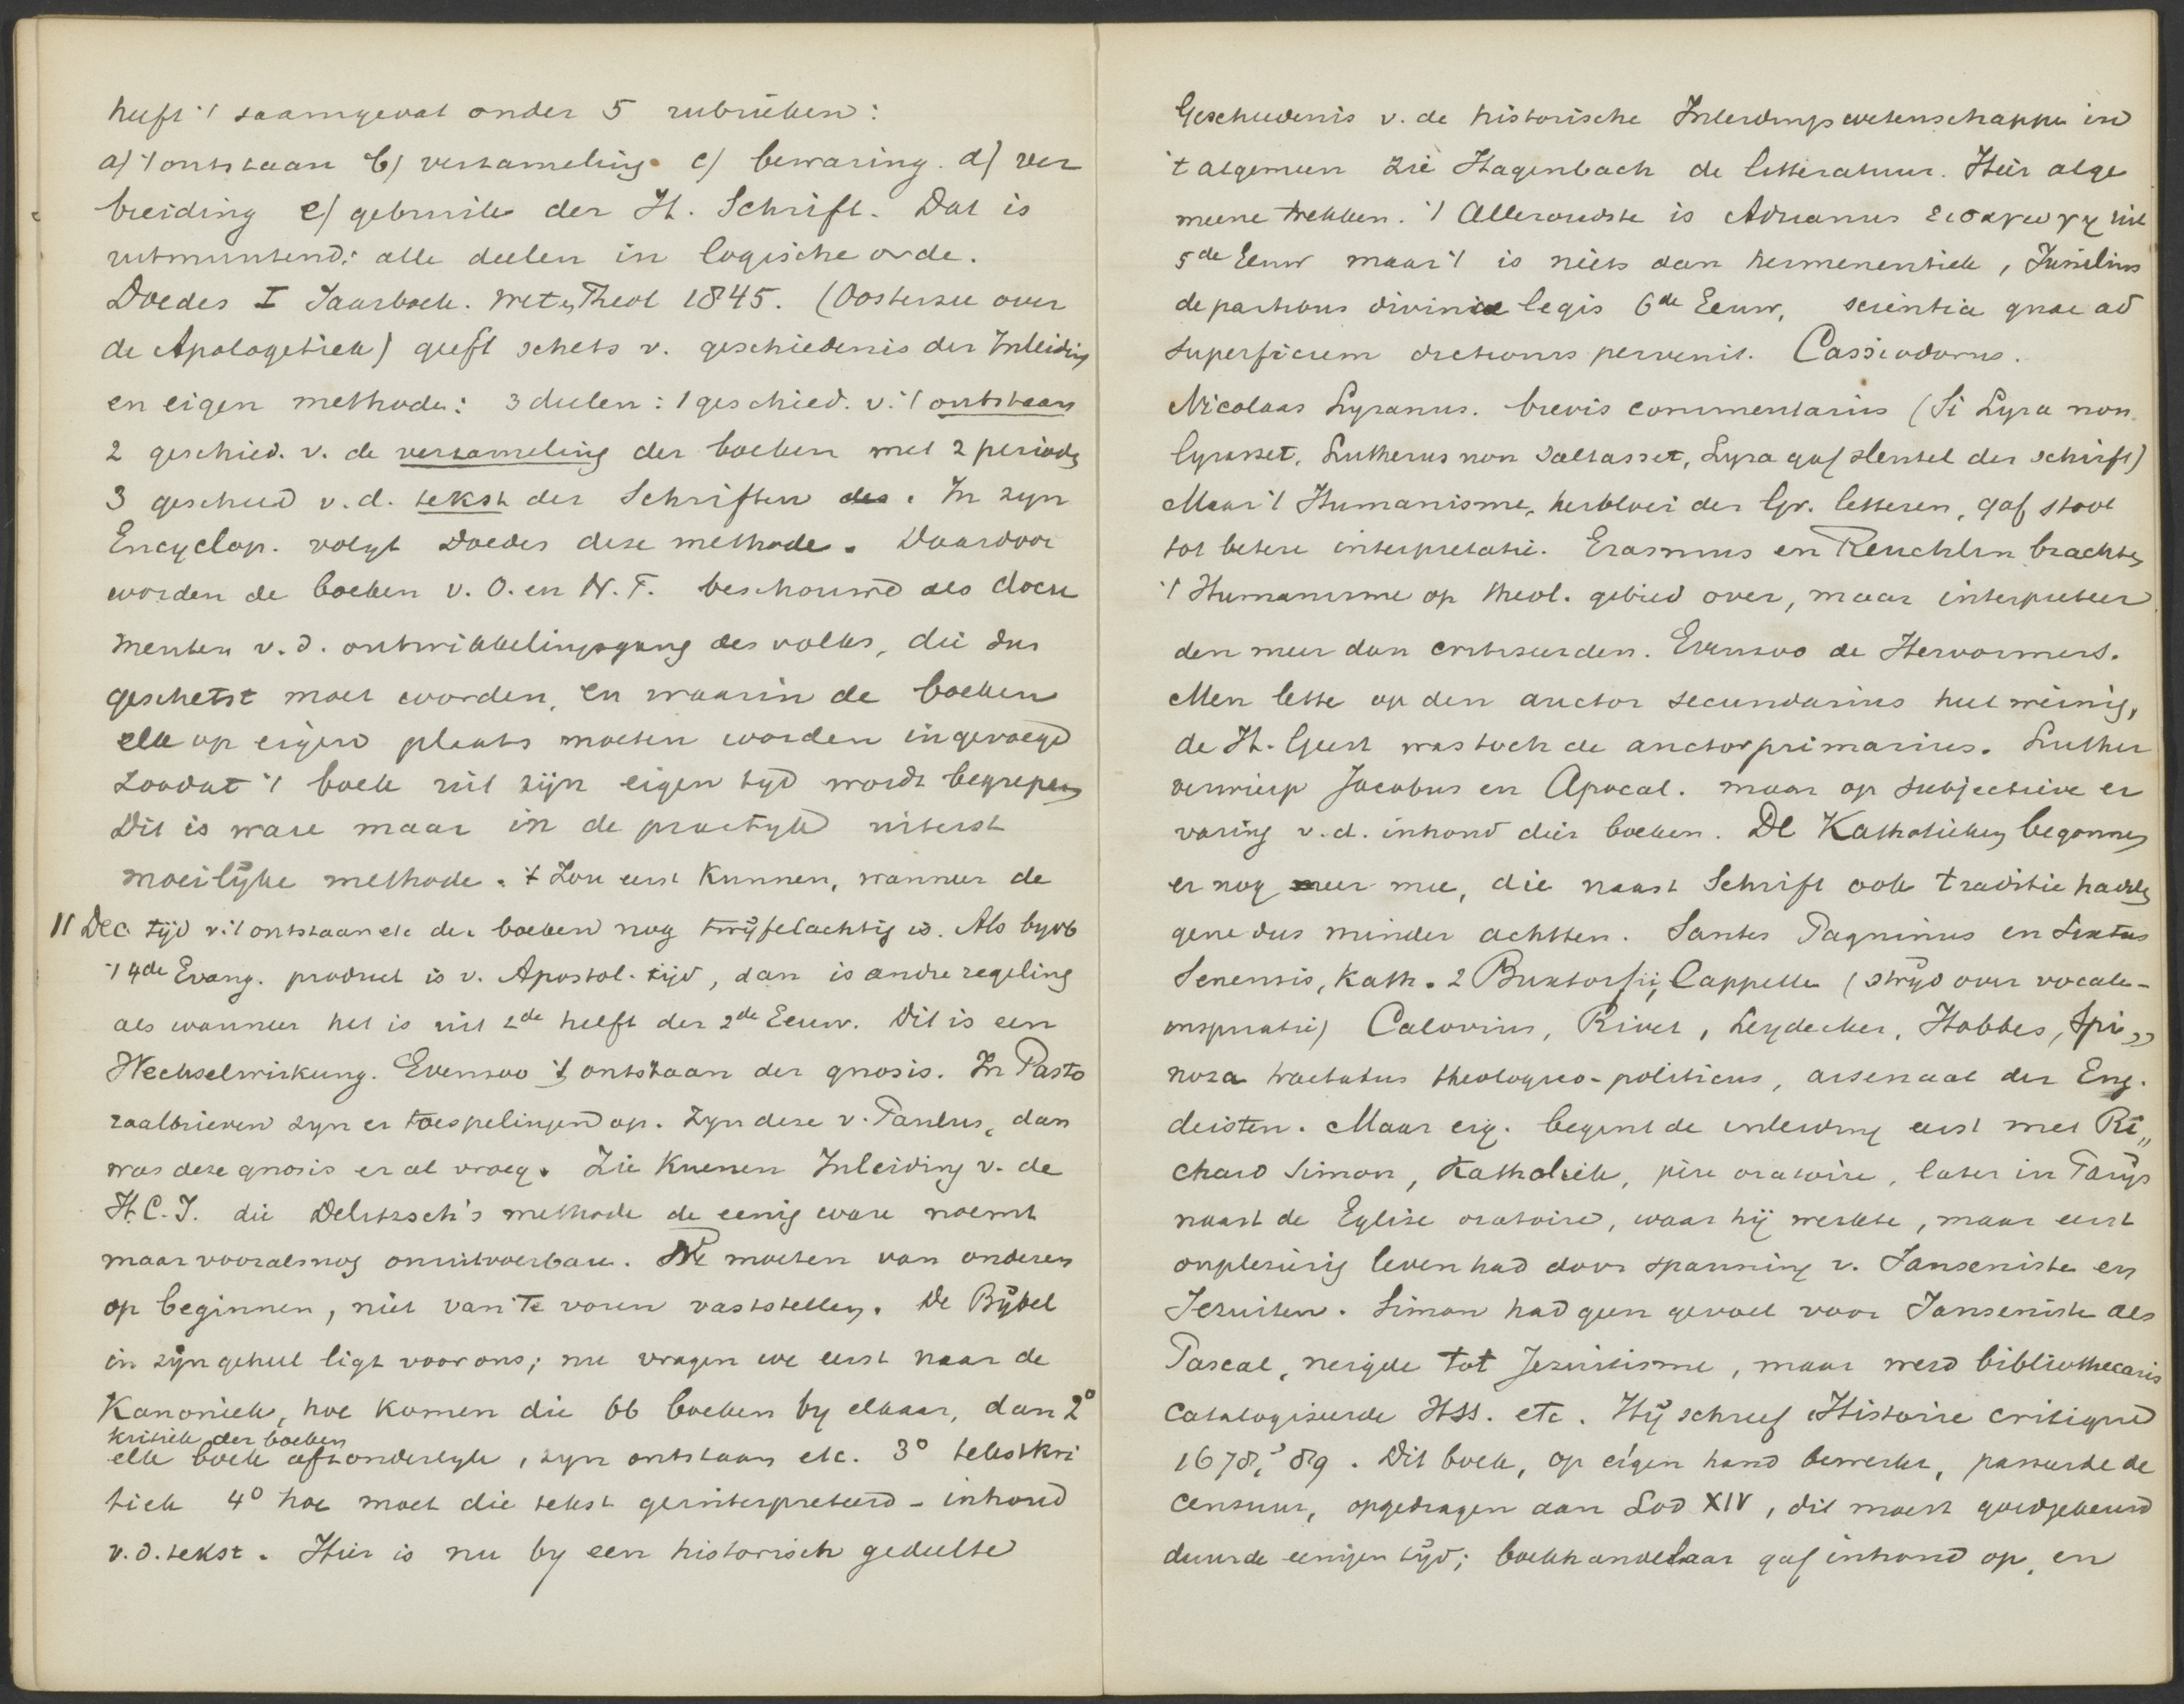 heeft 't saamgevat onder 5 rubrieken:
a) 't ontstaan b) verzameling c) bewaring. d) ver
breiding e) gebruik der H. Schrift. Dat is
uitmuntend: alle deelen in logische orde.
Doedes I Jaarboek. Wet. Theol 1845. (Oosterzee over
de Apologetiek) geeft schets v. geschiedenis der Inleiding
en eigen methode: 3 deelen: 1 geschied. v. 't ontstaan
2 geschied. v. de verzameling der boeken met 2 perioden
3 geschied v.d. tekst der Schriften des. In zyn
Encyclop. volgt Doedes deze methode. Daardoor
worden de boeken v. O. en N. T. beschouwd als docu
menten v.d. ontwikkelingsgang des volks, die dus
geschetst moet worden, en waarin de boeken
elk op eigen plaats moeten worden ingevoegd
zoodat 't boek uit zijn eigen tyd wordt begrepen
Dit is ware maar in de practyk uiterst
moeilijke methode. 't Zou eerst kunnen, wanneer de
11 Dec. tijd v. 't ontstaan etc der boeken nog twijfelachtig is. Als byvb
't 4de Evang. product is v. Apostol. tijd, dan is andre regeling
als wanneer het is uit 2de helft der 2de Eeuw. Dit is een
Wechselwirkung. Evenzoo 't ontstaan der gnosis. In Pasto
raalbrieven zyn er toespelingen op. Zyn deze v. Paulus, dan
was deze gnosis er al vroeg. Zie Kuenen Inleiding v. de
H.C.I. die Delitzsch's methode de eenig ware noemt
maar vooralsnog onuitvoerbare. We moeten van onderen
op beginnen, niet van te voren vaststellen. De Bijbel
in zijn geheel ligt voor ons; nu vragen we eerst naar de
Kanoniek, hoe komen die 66 boeken by elkaar, dan 2°
kritiek der boeken
elk boek afzonderlyk, zyn ontstaan etc. 3° tekstkri
tiek 4° hoe moet die tekst geinterpreteerd - inhoud
v.d. tekst. Hier is nu by een historisch gedeelte
Geschiedenis v. de historische Inleidingswetenschappen in
't algemeen zie Hagenbach de litteratuur. Hier alge
meene trekken. 't Alleroudste is Adrianus εισαγωγη uit
5de Eeuw maar 't is niets dan hermeneutiek, Junilius
de partibus divinae legis 6de Eeuw, scientia quae ad
superficiem dictionis pervenit. Cassiodorus.
Nicolaas Lyranus. brevis commentarius (Si Lyra non
lyrasset, Lutherus non saltasset, Lyra gaf sleutel der schrift)
Maar 't Humanisme, herbloei der Gr. letteren, gaf stoot
tot betere interpretatie. Erasmus en Reuchlin brachten
't Humanisme op theol. gebied over, maar interpreteer
den meer dan critiseerden. Evenzoo de Hervormers.
Men lette op den auctor secundarius heel weinig,
de H. Geest was toch de auctor primarius. Luther
verwierp Jacobus en Apocal. maar op subjectieve er
varing v.d. inhoud dier boeken. De Katholieken begonnen
er nog meer mee, die naast Schrift ook traditie hadden
gene dus minder achtten. Santes Pagninus en Sixtus
Senensis, Kath. 2 Buxtorfii, Cappelle (stryd over vocale-
inspiratie) Calovius, Rivet, Leydecker, Hobbes, Spi,,
noza tractatus theologico-politicus, arsenaal der Eng.
deisten. Maar eig. begint de inleiding eerst met Ri,,
chard Simon, Katholiek, père oratoire, later in Parijs
naast de Eglise oratoire, waar hij werkte, maar eerst
onplezierig leven had door spanning v. Janseniste en
Jezuiten. Simon had geen gevoel voor Janseniste als
Pascal, neigde tot Jezuitisme, maar werd bibliothecaris
catalogiseerde HSS. etc. Hij schreef Histoire critique
1678, '89. Dit boek, op eigen hand bewerkt, passeerde de
censuur, opgedragen aan Lod XIV, dit moest goedgekeurd
duurde eenigen tijd; boekhandelaar gaf inhoud op, en